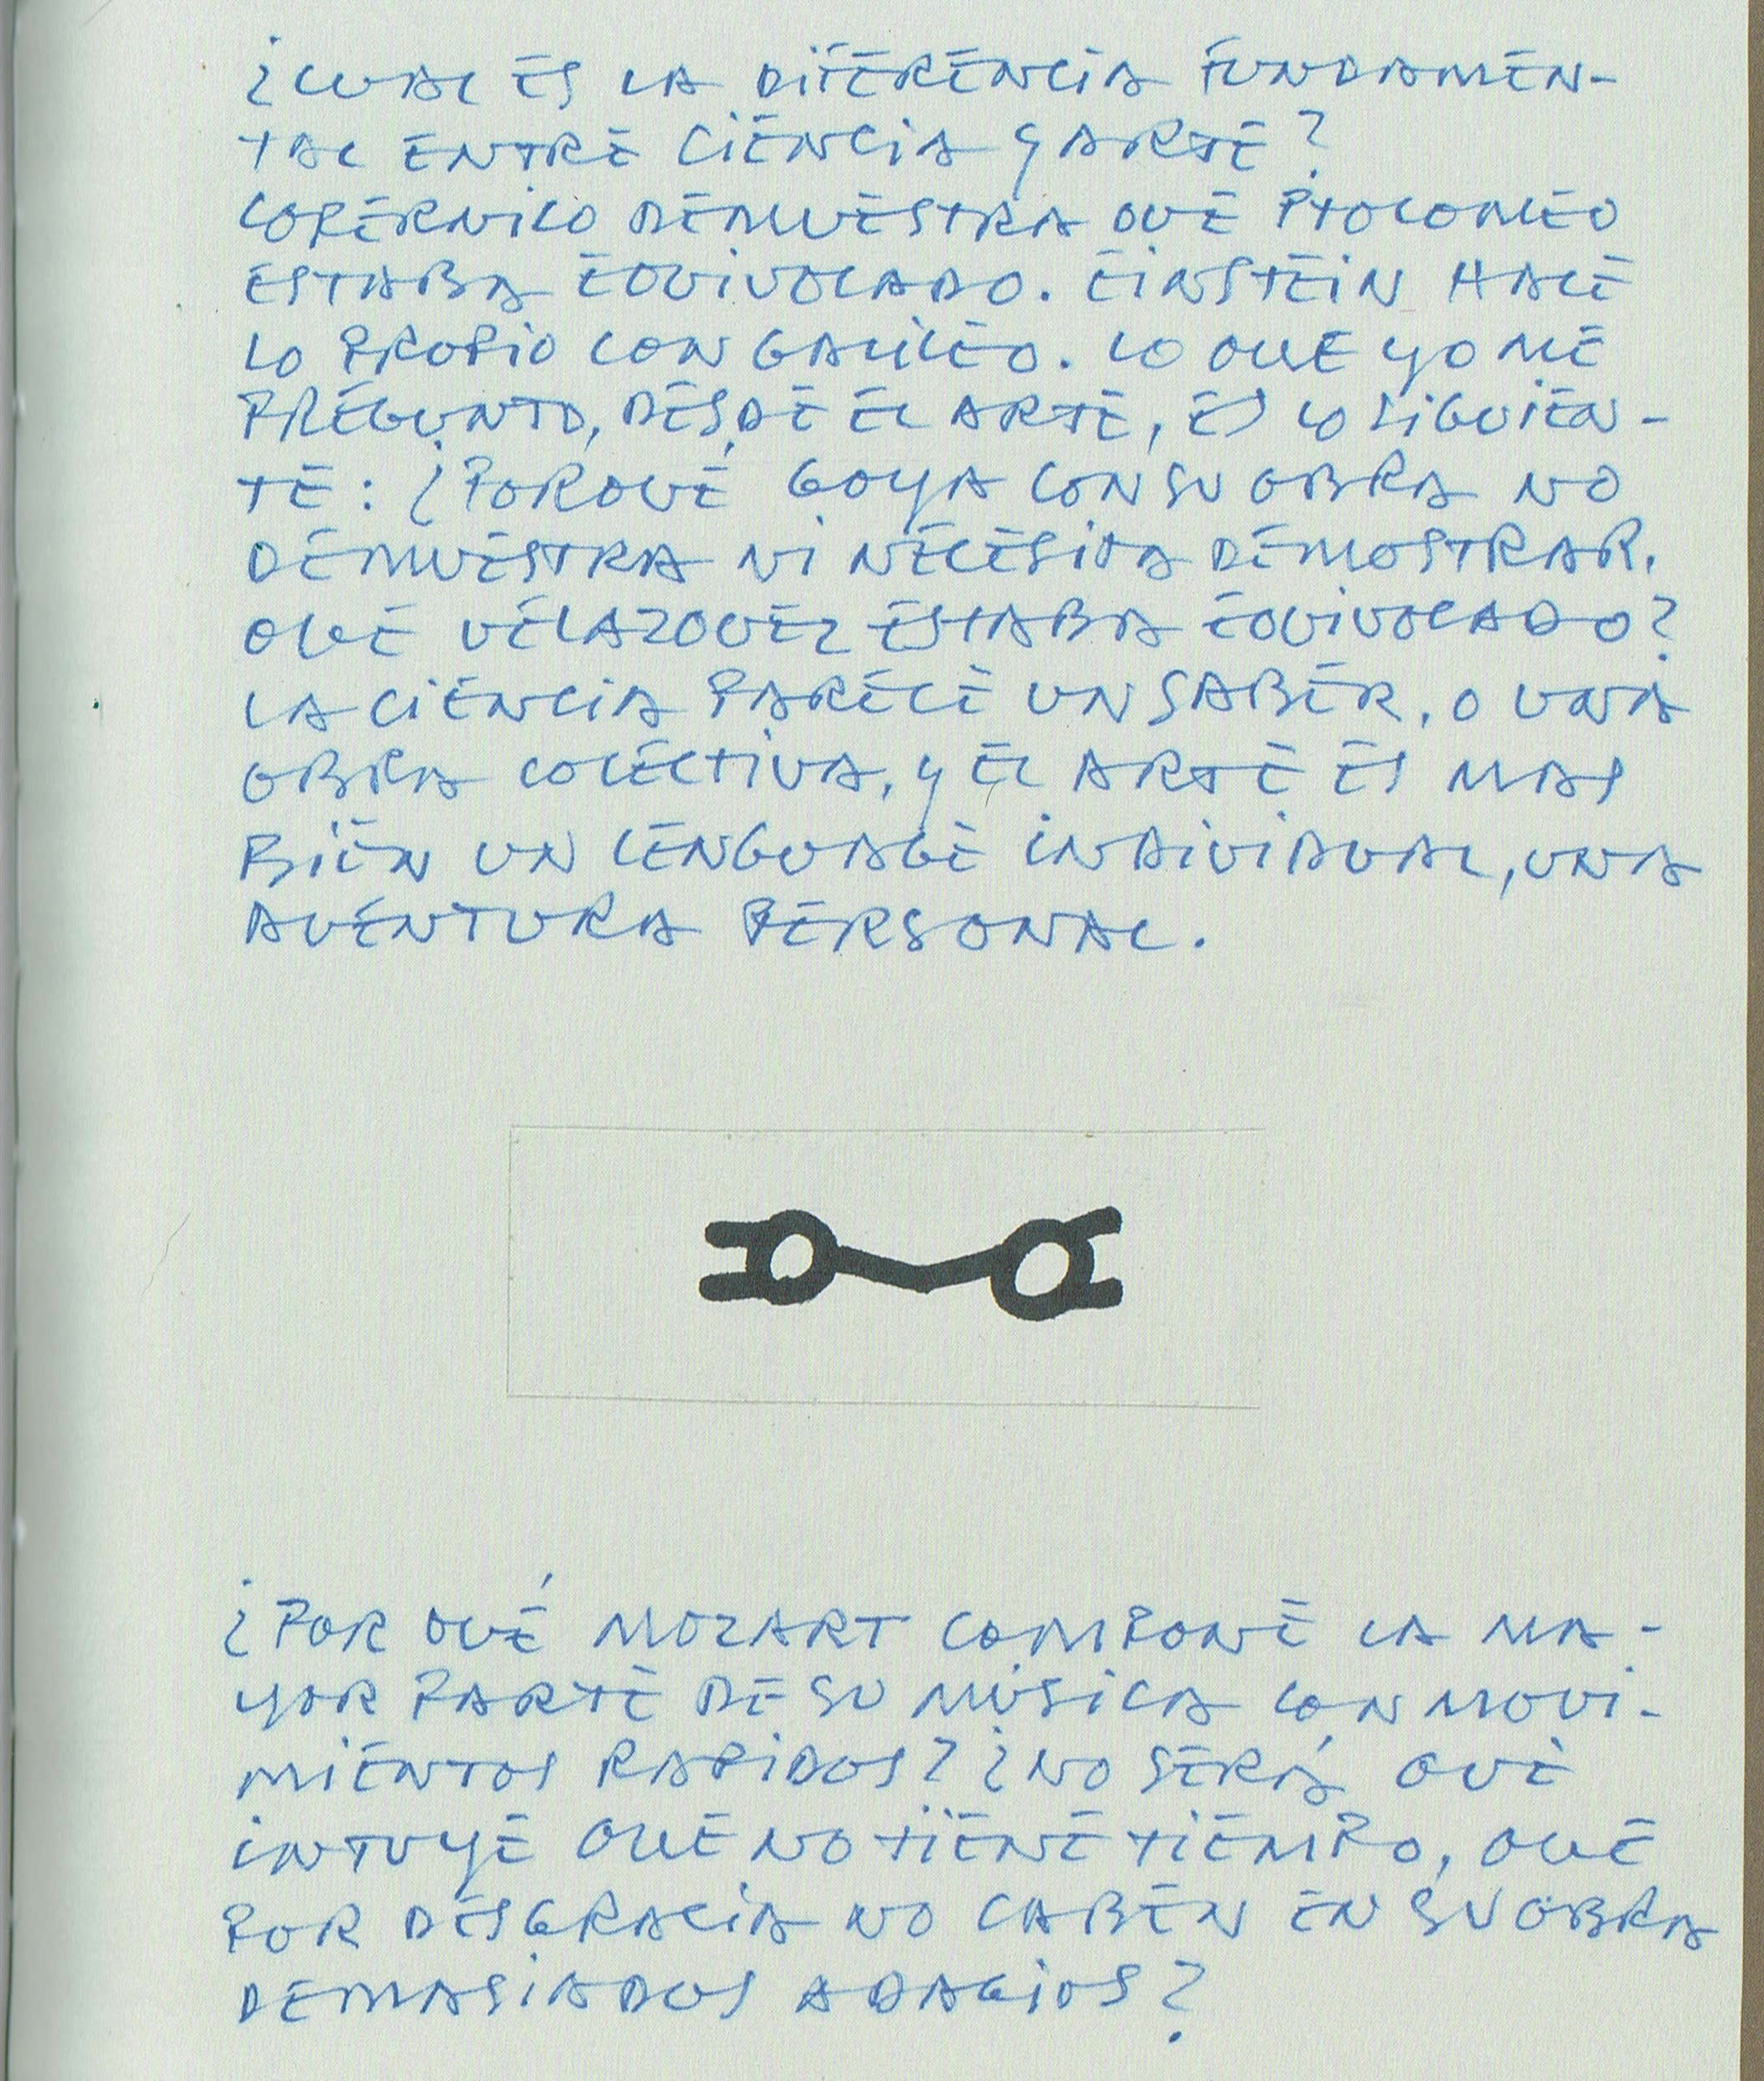 ¿CUAL ES LA DIFERENCIA FUNDAMEN-
TAL ENTRE CIENCIA Y ARTE?
COPERNICO DEMUESTRA QUE PTOLOMEO
ESTABA EQUIVOCADO. EINSTEIN HACE
LO PROPIO CON GALILEO. LO QUE YO ME
PREGUNTO, DESDE EL ARTE, ES LO SIGUIEN-
TE: ¿PORQUE GOYA CON SU OBRA NO
DEMUESTRA NI NECESITA DEMOSTRAR,
QUE VELAZQUEZ ESTABA EQUIVOCADO?
LA CIENCIA PARECE UN SABER, O UNA
OBRA COLECTIVA, Y EL ARTE ES MAS
BIEN UN LENGUAGE INDIVIDUAL, UNA
AVENTURA PERSONAL.
¿POR QUÉ MOZART COMPONE LA MA-
YOR PARTE DE SU MUSICA CON MOVI-
MIENTOS RAPIDOS? ¿NO SERÁ QUE
INTUYE QUE NO TIENE TIEMPO, QUE
POR DESGRACIA NO CABEN EN SU OBRA
DEMASIADOS ADAGIOS?